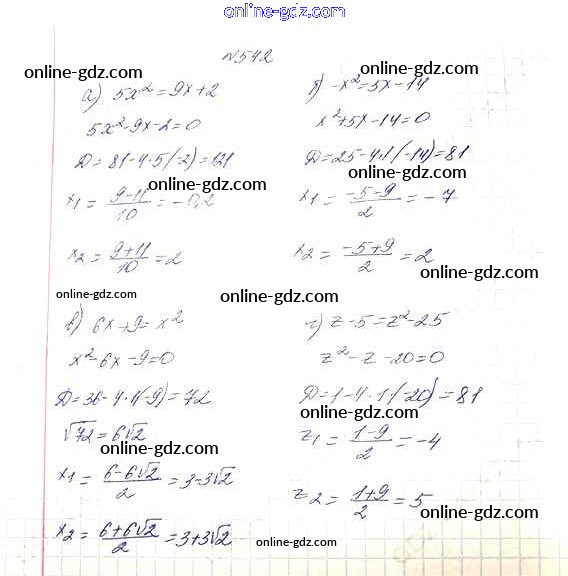 online-gdz.com
№542
online-gdz.com
а) 5x² = 9x + 2
5x² - 9x - 2 = 0
D = 81 - 4·5(-2) = 121
x₁ = (9-11)/10 = -0,2
online-gdz.com
x₂ = (9+11)/10 = 2
online-gdz.com
б) -x² = 5x - 14
online-gdz.com
x² + 5x - 14 = 0
D = 25 - 4·1(-14) = 81
online-gdz.com
x₁ = (-5-9)/2 = -7
x₂ = (-5+9)/2 = 2
online-gdz.com
online-gdz.com
в) 6x + 9 = x²
x² - 6x - 9 = 0
D = 36 - 4·1(-9) = 72
√72 = 6√2
online-gdz.com
x₁ = (6-6√2)/2 = 3-3√2
x₂ = (6+6√2)/2 = 3+3√2
online-gdz.com
г) z - 5 = z² - 25
z² - z - 20 = 0
D = 1 - 4·1·(-20) = 81
online-gdz.com
z₁ = (1-9)/2 = -4
z₂ = (1+9)/2 = 5
online-gdz.com